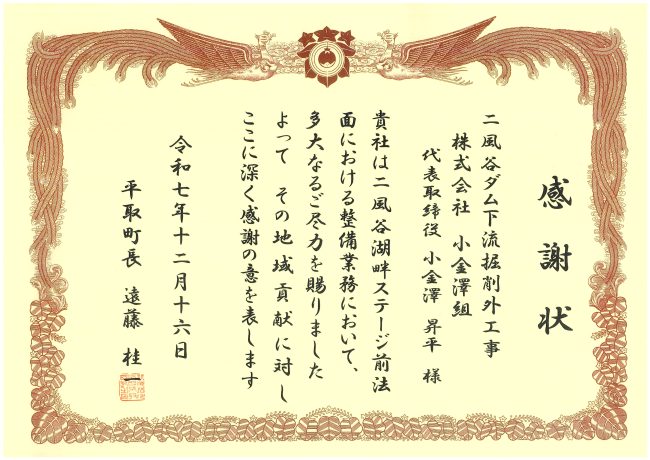 感謝状
二風谷ダム下流掘削外工事
株式会社 小金澤組
代表取締役 小金澤 昇平 様
貴社は二風谷湖畔ステージ前法
面における整備業務において、
多大なるご尽力を賜りました
よって その地域貢献に対し
ここに深く感謝の意を表します
令和七年十二月十六日
平取町長 遠藤 桂一